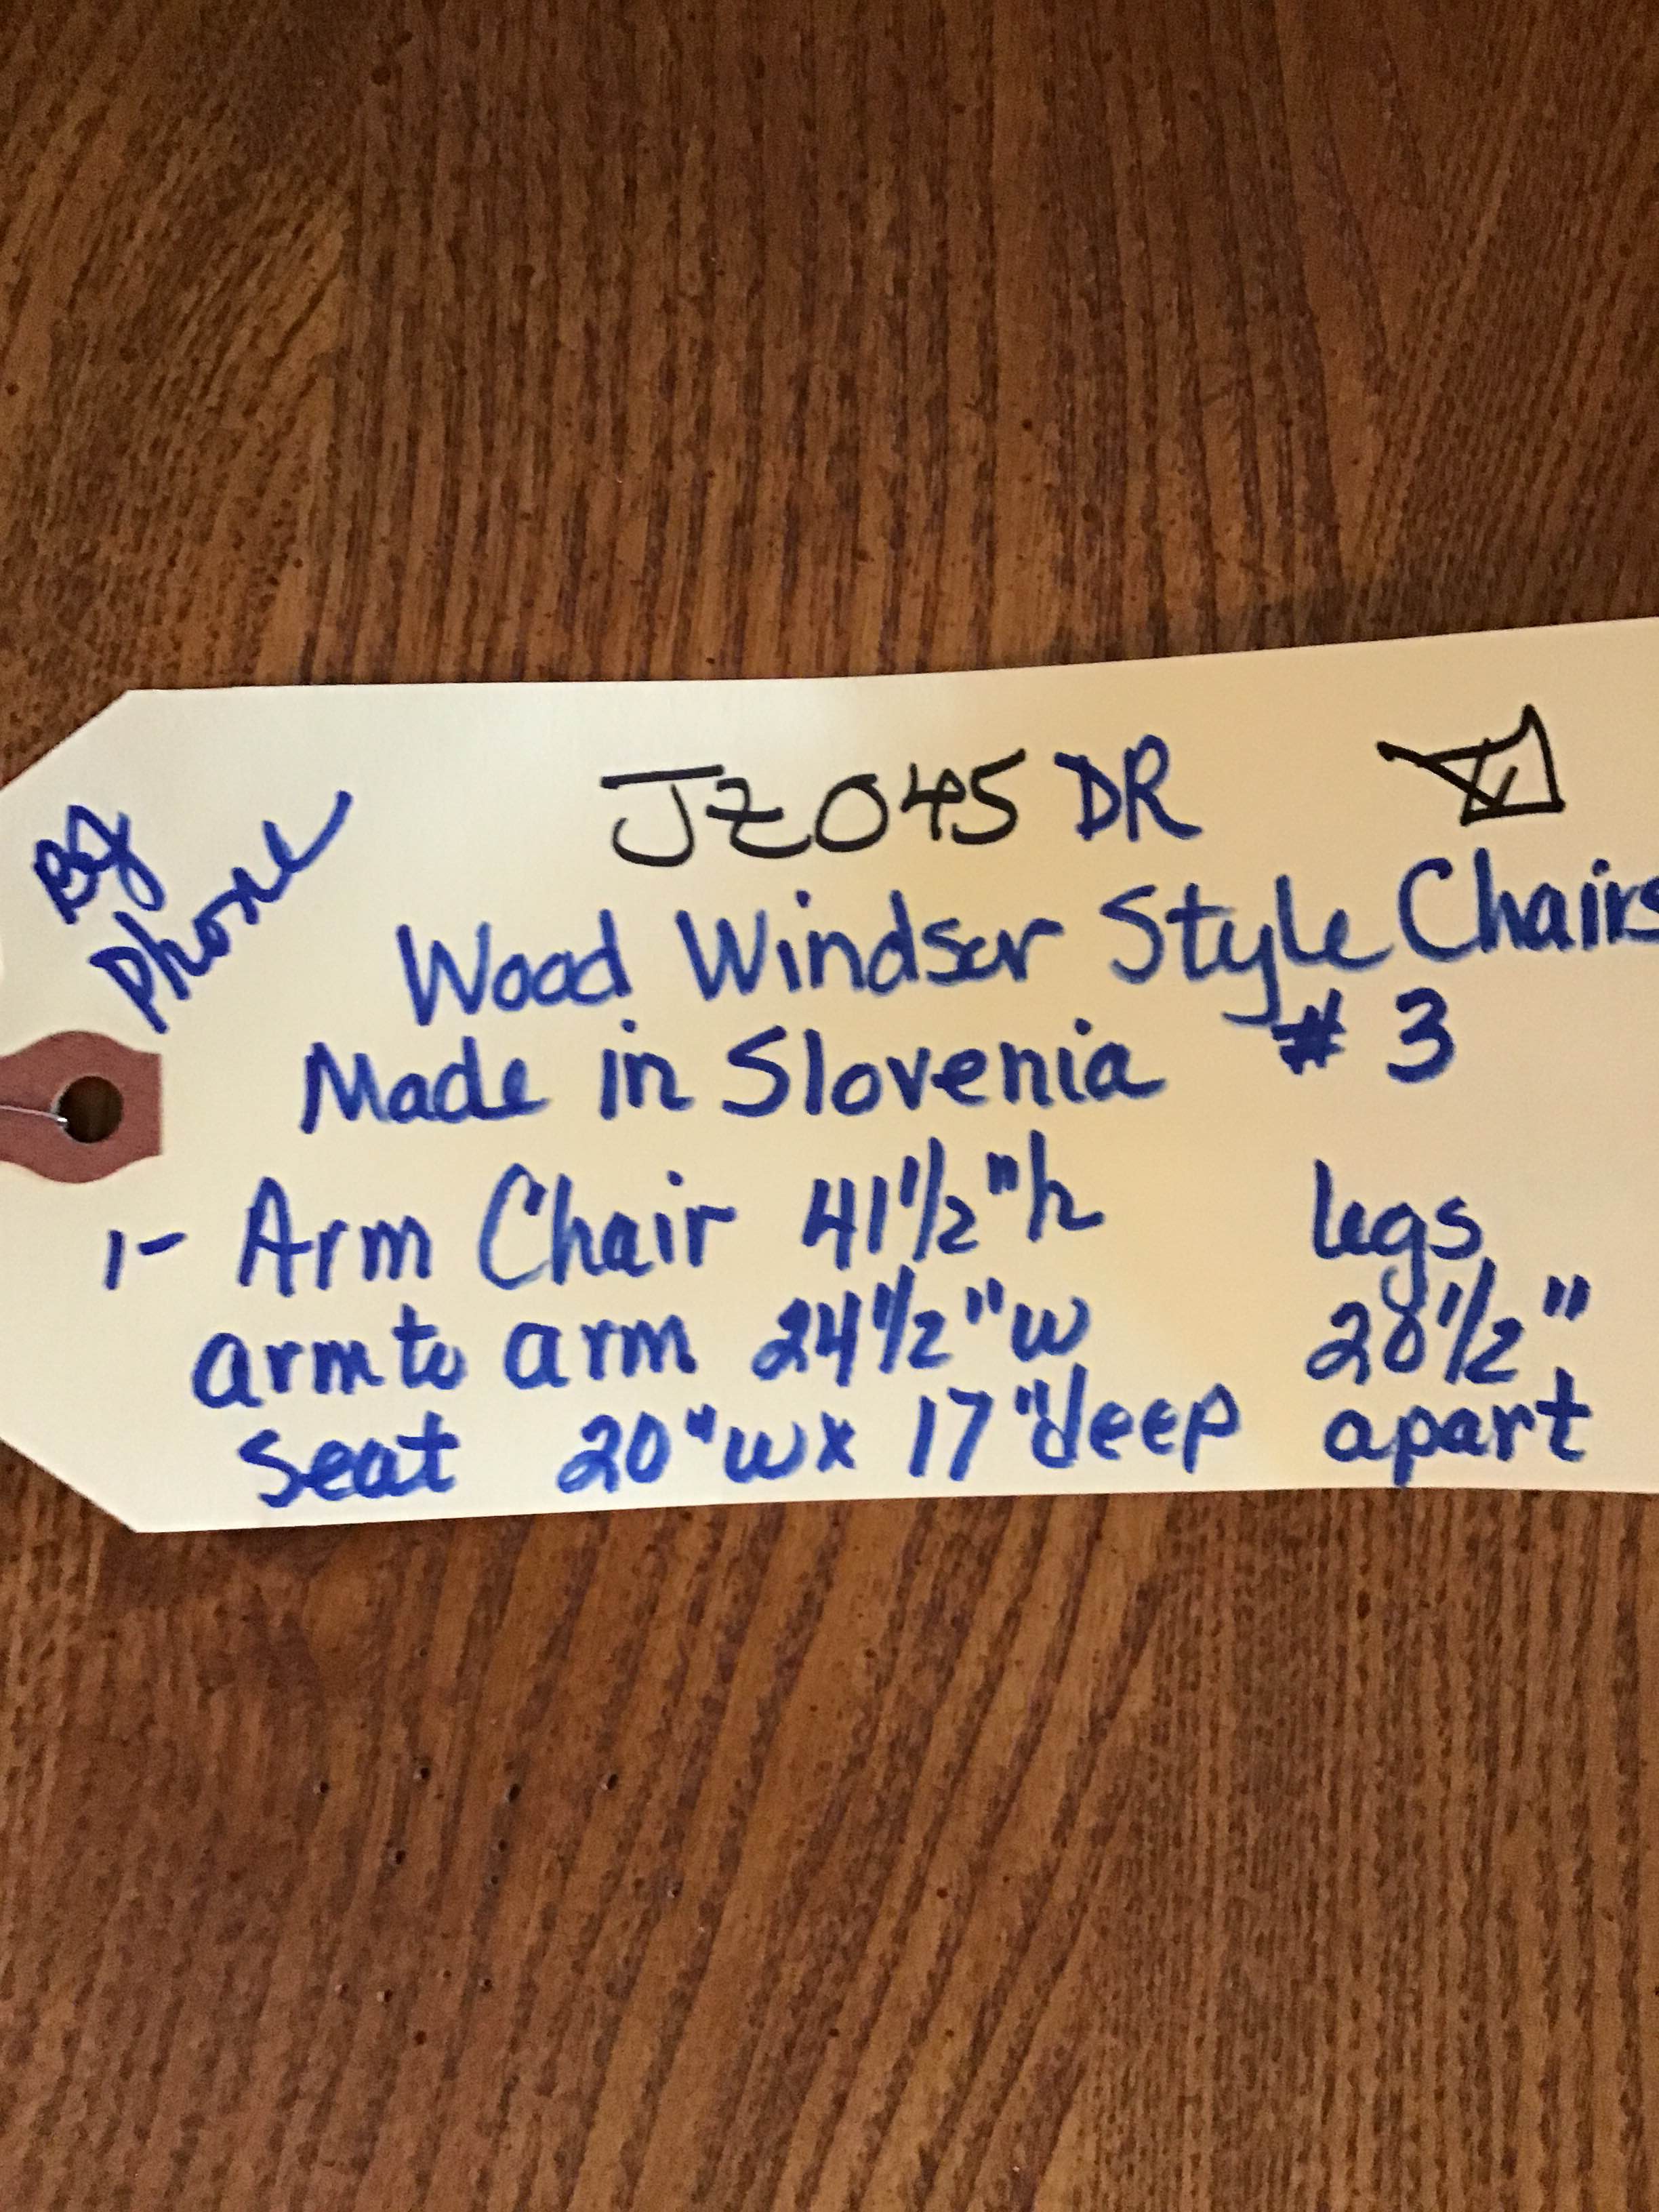 By
Phone
JZ045 DR
Wood Windsor Style Chairs
Made in Slovenia # 3
1- Arm Chair 41 1/2" h
arm to arm 24 1/2" w
Seat 20" w x 17" deep
legs
20 1/2"
apart